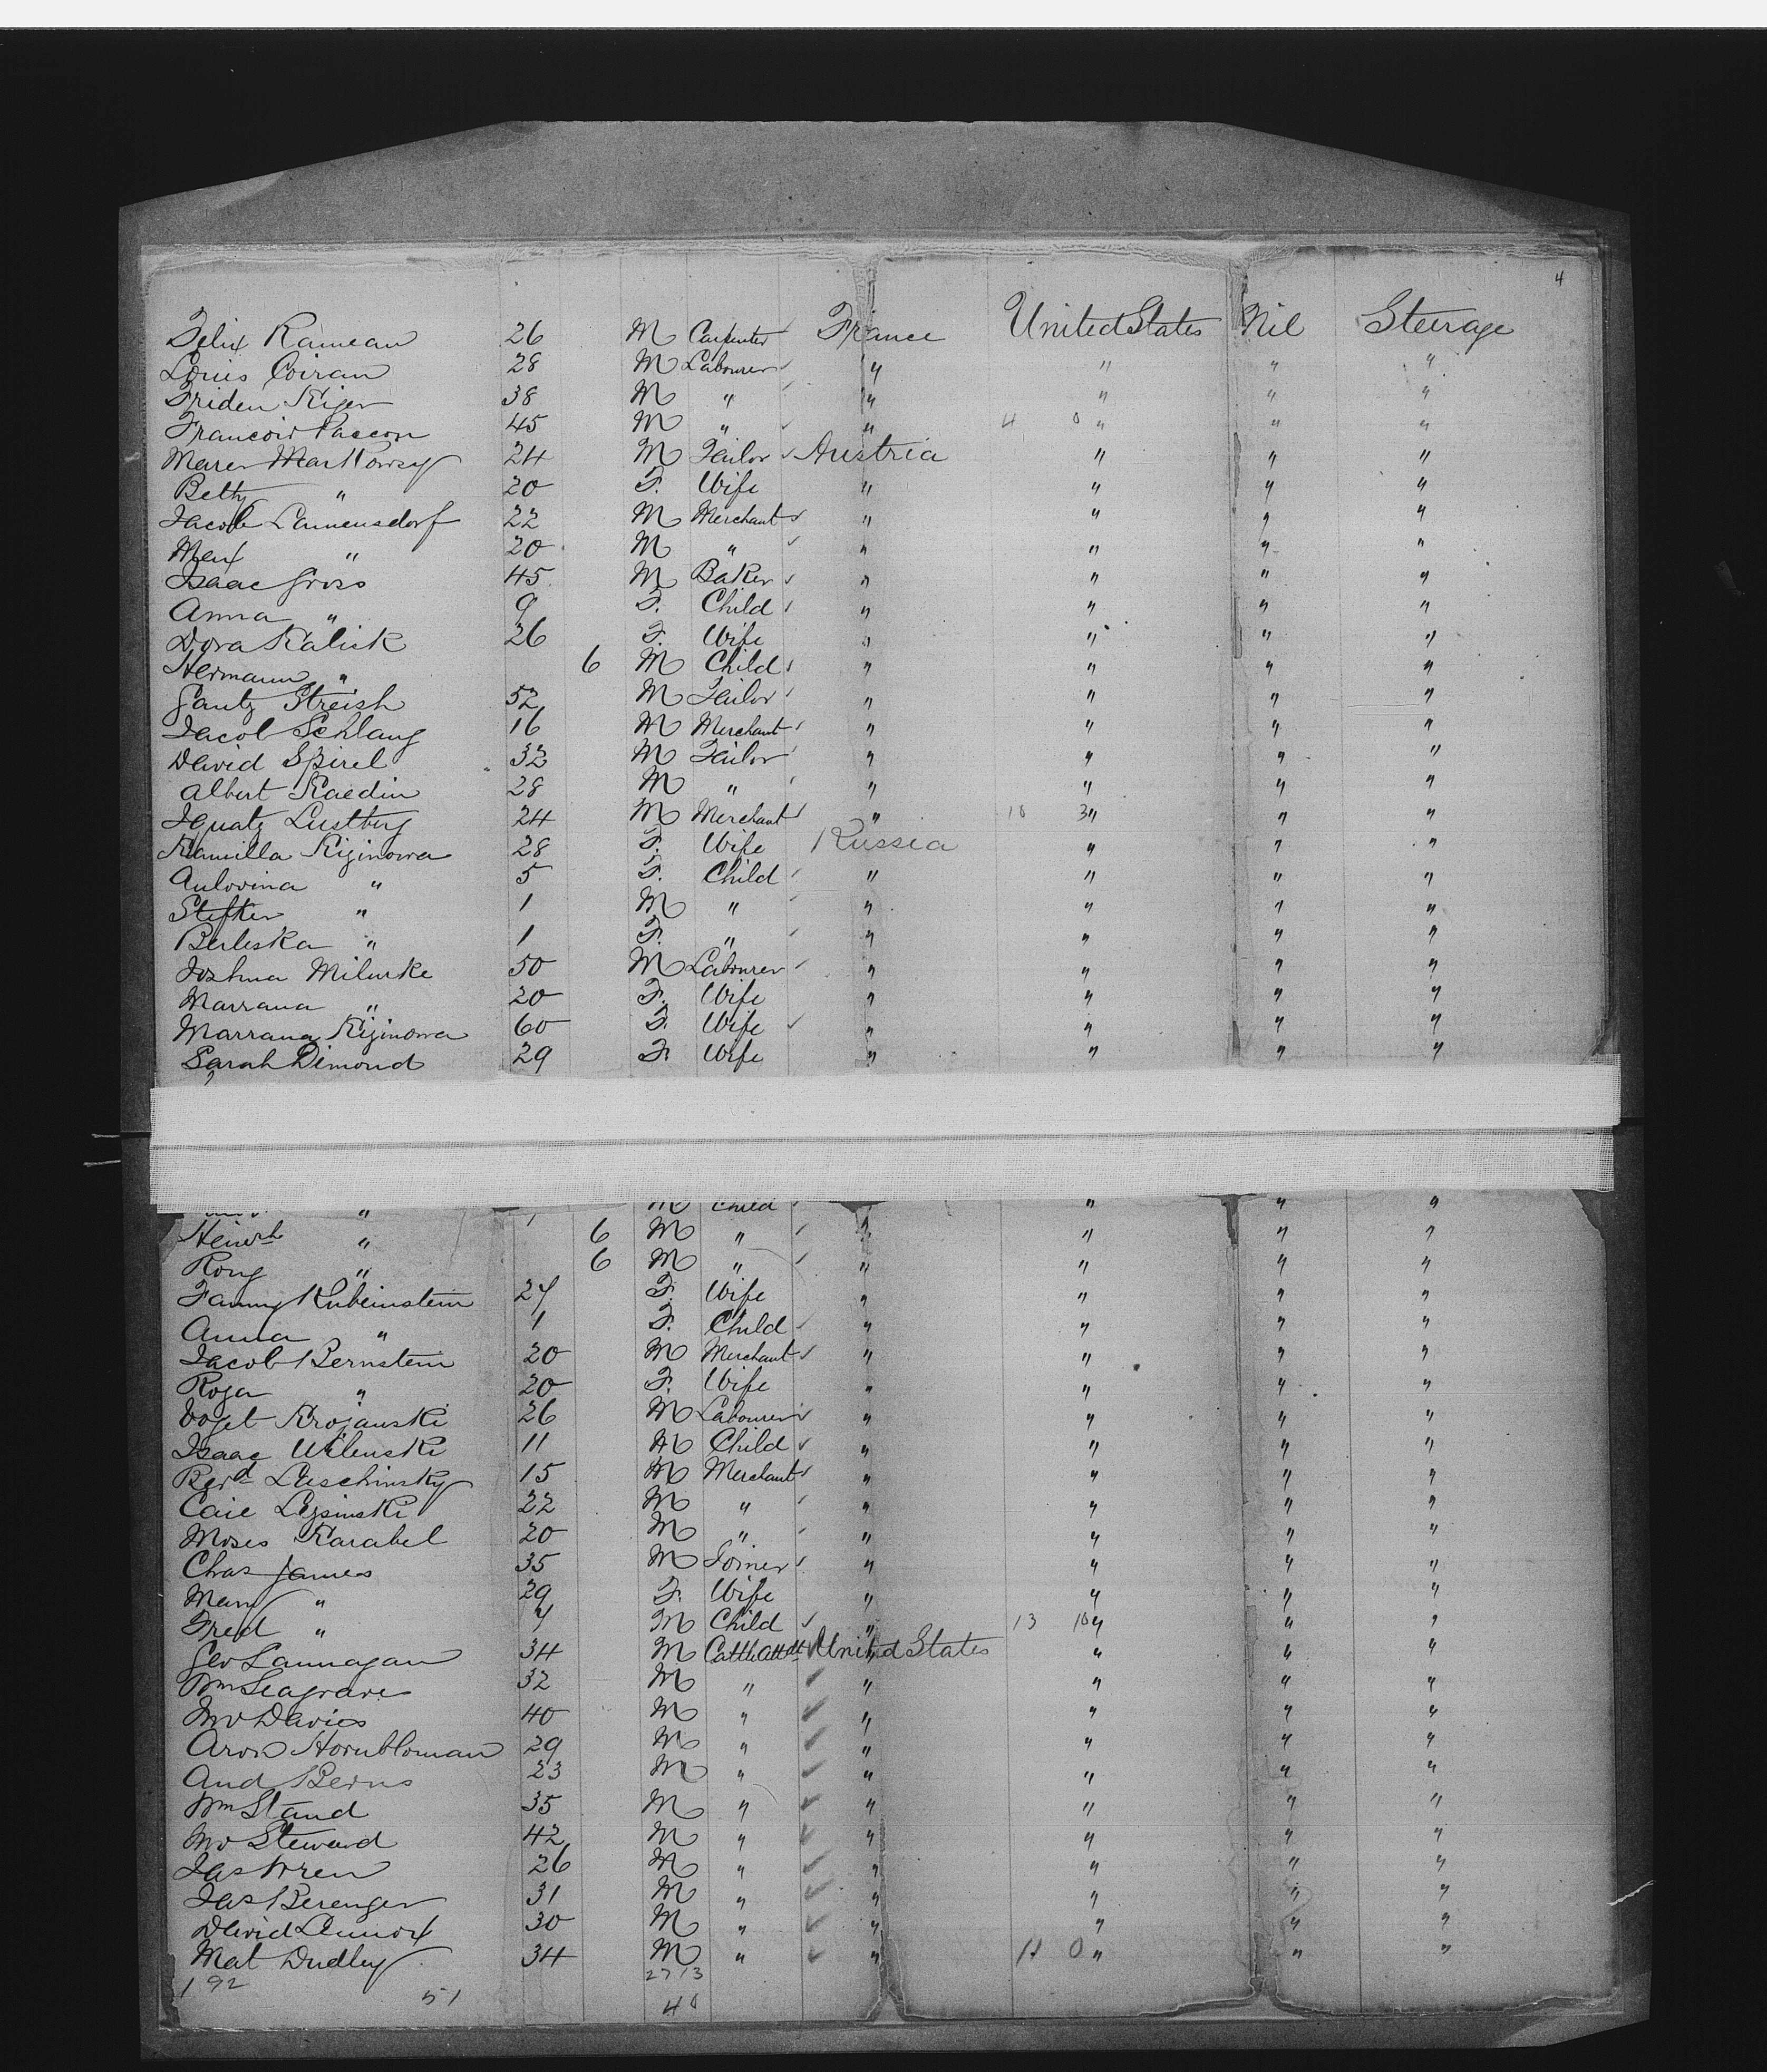 4
Felix Rameau 26 M Carpenter France United States Nil Steerage
Louis Coiran 28 M Labourer " " " "
Friden Kiger 38 M " " " " "
Francois Pascon 45 M " " 4 0 " " "
Marer Markowsy 24 M Tailor Austria " " "
Betty " 20 F. Wife " " " "
Jacob Lamensdorf 22 M Merchant " " " "
Max " 20 M " " " " "
Isaac Gross 45 M Baker " " " "
Anna " 9 F. Child " " " "
Dora Kalisk 26 F. Wife " " " "
Hermann " 6 M Child " " " "
Gantz Streish 52 M Tailor " " " "
Jacob Schlang 16 M Merchant " " " "
David Spirel 32 M Tailor " " " "
Albert Kaedin 28 M " " " " "
Ignatz Lustberg 24 M Merchant " 10 3 " " "
Kamilla Kizinowa 28 F. Wife Russia " " "
Aulovina " 5 F. Child " " " "
Stefker " 1 M " " " " "
Berleska " 1 F. " " " " "
Joshua Milurke 50 M Labourer " " " "
Marrana " 20 F. Wife " " " "
Marrana Kizinowa 60 F. Wife " " " "
Sarah Dimond 29 F. Wife " " " "
" 1 M Child " " " "
Heinrh " 6 M " " " " "
Rony " 6 M " " " " "
Fanny Rubeinstein 27 F. Wife " " " "
Anna " 1 F. Child " " " "
Jacob Bernstein 20 M Merchant " " " "
Roza " 20 F. Wife " " " "
Voget Krojanski 26 M Labourer " " " "
Isaac Wilenski 11 M Child " " " "
Berd Laschinsky 15 M Merchant " " " "
Caie Lipsinski 22 M " " " " "
Moses Karabel 20 M " " " " "
Chas James 35 M Joiner " " " "
Mary " 29 F. Wife " " " "
Fred " 7 M Child " 13 10 " " "
Geo Lannagan 34 M Cattle Attdt United States " " "
Wm Seagrave 32 M " " " " "
Jno Davies 40 M " " " " "
Aron Hornbloman 29 M " " " " "
And Berns 23 M " " " " "
Wm Stand 35 M " " " " "
Jno Steward 42 M " " " " "
Jas Wren 26 M " " " " "
Jas Berenger 31 M " " " " "
David Lennox 30 M " " " " "
Mat Dudley 34 M " " 11 0 " " "
192 51 27 13
40